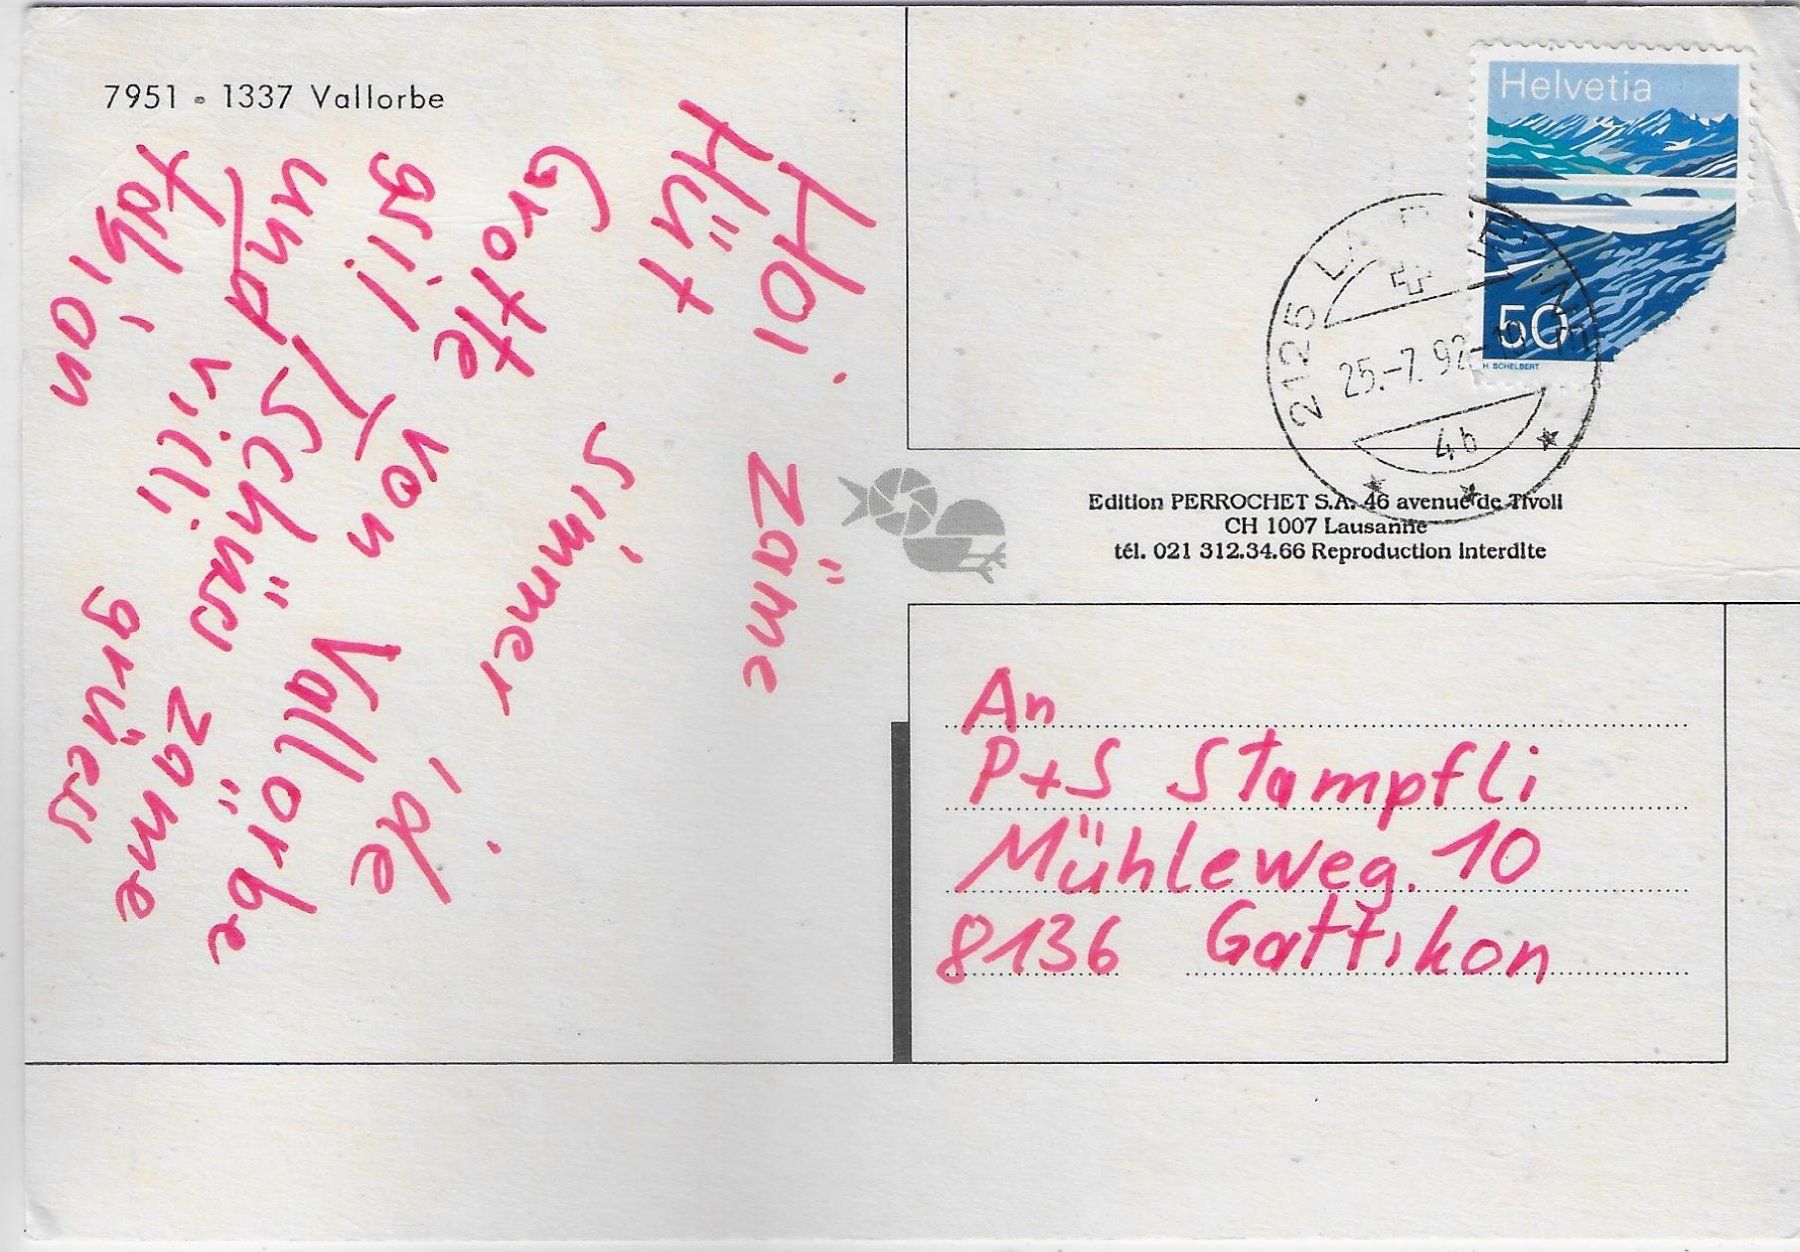 7951 - 1337 Vallorbe
Hoi zäme
Hüt simmer i de
Grotte von Vallorbe
gsi! Tschüss zäme
und vili grüess
Fabian
Helvetia
50
H. SCHELBERT
2125
25.-7.92-10
4b
Edition PERROCHET S.A. 46 avenue de Tivoli
CH 1007 Lausanne
tél. 021 312.34.66 Reproduction interdite
An
P+S Stampfli
Mühleweg. 10
8136 Gattikon